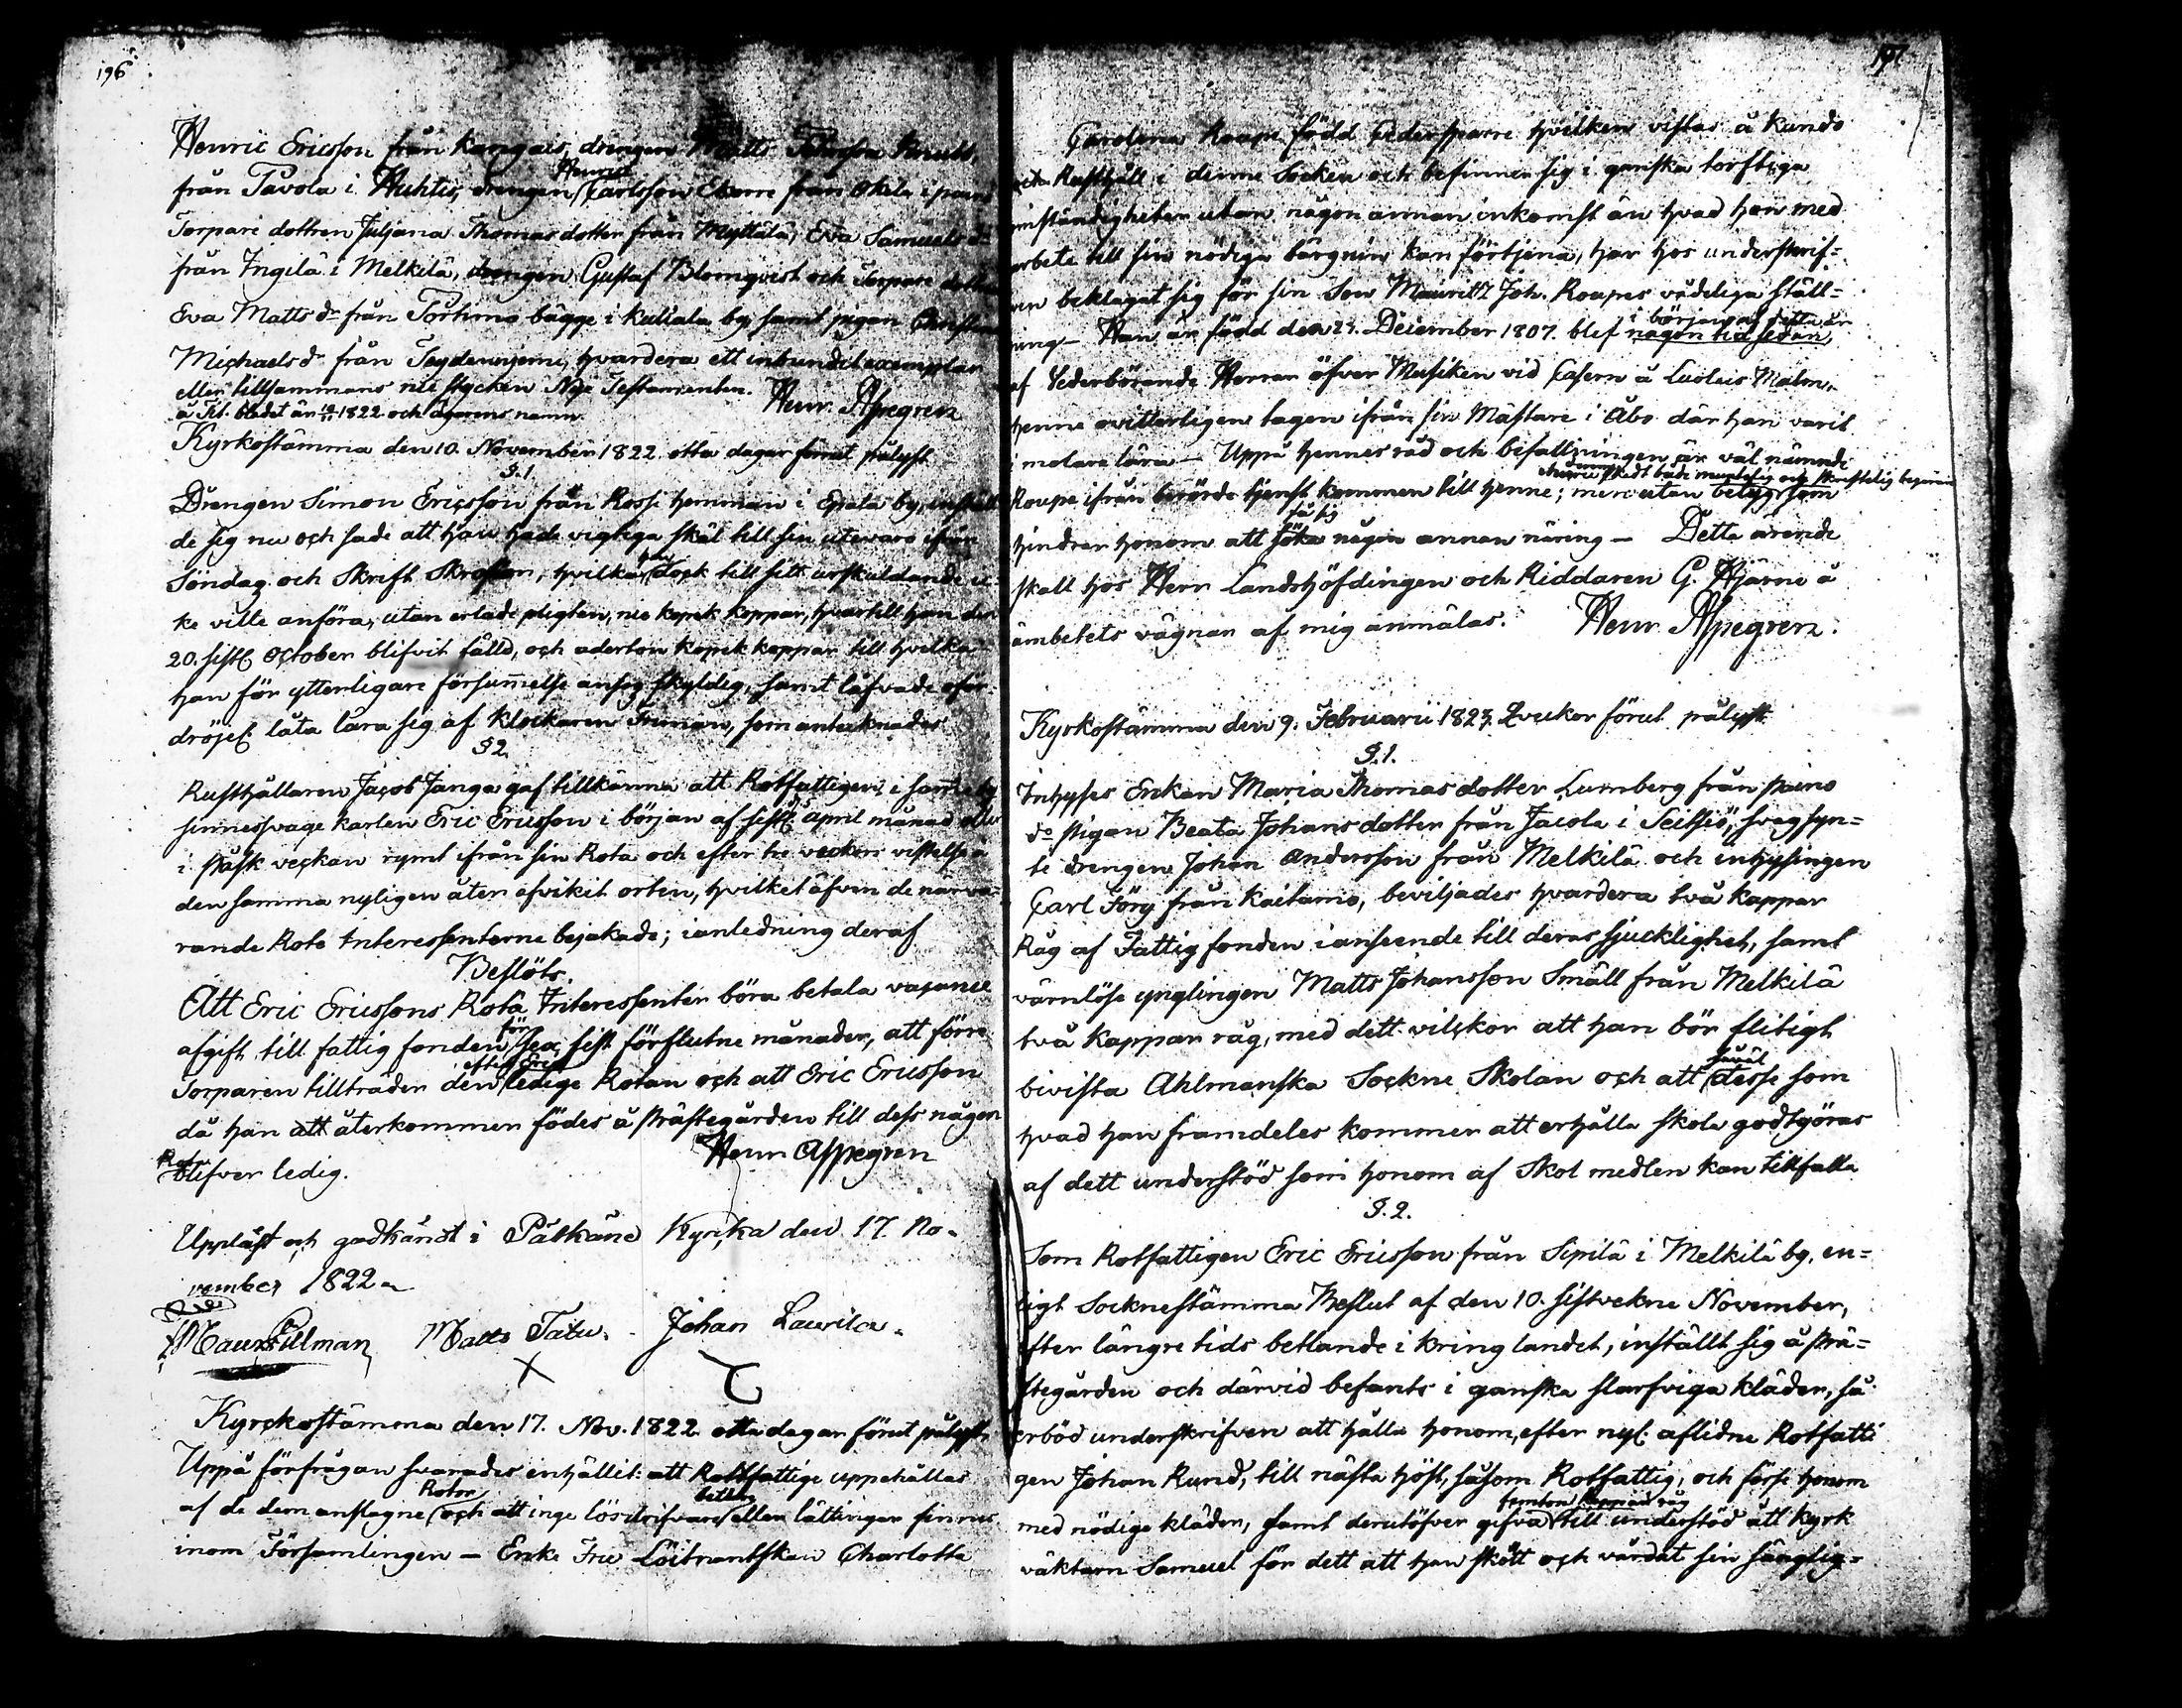 196
Henric Ericsson från Kangais, drengen Matts
från Tavola i Huhtis, drengen Henric Carlsson från
Torpare dottren Juljana Thomas dotter från Myttälä, Eva Samuels dr
från Ingilä i Melkilä, drengen Gustaf Blomqvist och Torpare
Eva Matts dr från Tortimo bägge i Kuliala by, samt pigan
Michaels dr från hvardera ett inbundet exemplar
eller tillsammans nie stycken Nya Testamenten. Henr. Aspegren
å Tit. bladet år 1822 och ägarens namn.
Kyrkostämma den 10. November 1822 otta dagar förut pålyst
§. 1
Drengen Simon Ericsson från Rossi hemman i Epala by, instäl
de sig nu och sade att han hade vigtiga skäl till sin utevaro ifrån
Söndag och Skrift Skolan, hvilka han dock till sitt urskuldande ic
ke ville anföra, utan erlade pligten, nie kopek koppar, hvartill han den
20. sistl. October blifvit fälld, och aderton kopek koppar till hvilka
han för ytterligare försummelse ansåg skyldig, samt låfvade oför
dröjel. låta lära sig af Klockaren Friman, som antecknades
§ 2
Rusthållaren Jacob Janga gaf tillkänna att Rotfattigen i samme by
sinnessvage karlen Eric Ericsson i början af sistl. April månad eller
i Påsk veckan rymt ifrån sin Rota och efter tre veckors vistelse å
den samma nyligen åter afvikit orten, hvilket äfven de närva-
rande Rote Interessenterne bejakade; i anledning deraf
Beslöts.
Att Eric Ericssons Rota Interessenter böra betala vacance
afgift till fattig fonden för sex sist förflutne månader, att förre
Torparen tillträder den efter Eric ledige Rotan och att Eric Ericsson
då han att återkommer födes å Prästegården till dess någon
Rota blifver ledig. Henr Aspegren
Uppläst och godkändt i Pälkäne Kyrcka den 17. No-
vember 1822
Maur Pillman Matts Tatu. Johan Laurila.
Kyrckostämma den 17. Nov. 1822 otta dagar förut pålyst.
Uppå förfrågan svarades enhällit: att Rotfattige uppehållas
af de dem anslagne Rotor och att inge lösdrifvare bettlare eller lättingar finnas
inom Församlingen – Enke Fru Löitnantskan Charlotta
197
Carolina Roupe född Cedersparre hvilken vistas å Kunds
Rusthåll i denne Socken och befinner sig i ganska torftiga
omständigheter utan någon annan inkomst än hvad hon med
arbete till sin nödiga bärgning kan förtjena, har hos underskrif-
ven beklagat sig för sin Son Mauritz Joh. Roupes vådeliga ställ-
ning – Han är född den 23. December 1807. blef i början af detta år någon tid sedan,
af Vederbörande Herrar öfver Musiken vid Casern å Lucleis Malm,
henne ovitterligen tagen ifrån sin Mästare i Åbo där han varit
i målare lära – Uppå hennes råd och befallningen är väl nämnde
skedt både muntelig och skriftelig begäran
Roupe ifrån berörde tjenst kommen till henne; men utan betyg som
hindrar honom att få sig söka någon annan näring – Detta ärende
skall hos Herr Landshöfdingen och Riddaren G. Hjärne å
ämbetets vägnar af mig anmälas. Henr Aspegren.
Kyrkostämma den 9. Februarii 1823. 2 veckor förut pålyst
§. 1.
Inhyses Enkan Maria Thomas dotter Lumberg från Paino
do Pigan Beata Johans dotter från Jacola i Seitsiö, svagsyn-
te drengen Johan Andersson från Melkilä och inhysingen
Carl Förg från Kaitamo, beviljades hvardera två kappar
Råg af Fattig fonden i anseende till deras sjucklighet, samt
värnlöse ynglingen Matts Johansson Småll från Melkilä
två kappar råg, med dett vilckor att han bör flitigt
bivista Ahlmanska Sockne Skolan och att såväl desse som
hvad han framdeles kommer att erhålla skola godtgöras
af dett understöd som honom af Skol medlen kan tillfalla
§. 2.
Som Rotfattigen Eric Ericsson från Sipilä i Melkilä by, en-
ligt Socknestämma Beslut af den 10. sistvekne November,
efter längre tids betlande i kring landet, inställt sig å Prä-
stegården och därvid befants i ganska slarfviga kläder, så
erböd underskrifven att hålla honom, efter nyl. aflidne Rotfatti
gen Johan Rund, till nästa höst, såsom Rotfattig, och förse honom
med nödige kläder, samt derutöfver gifva femton kappar råg till understöd åt Kyrk
väktarn Samuel för dett att han skött och vårdat sin sänglig-